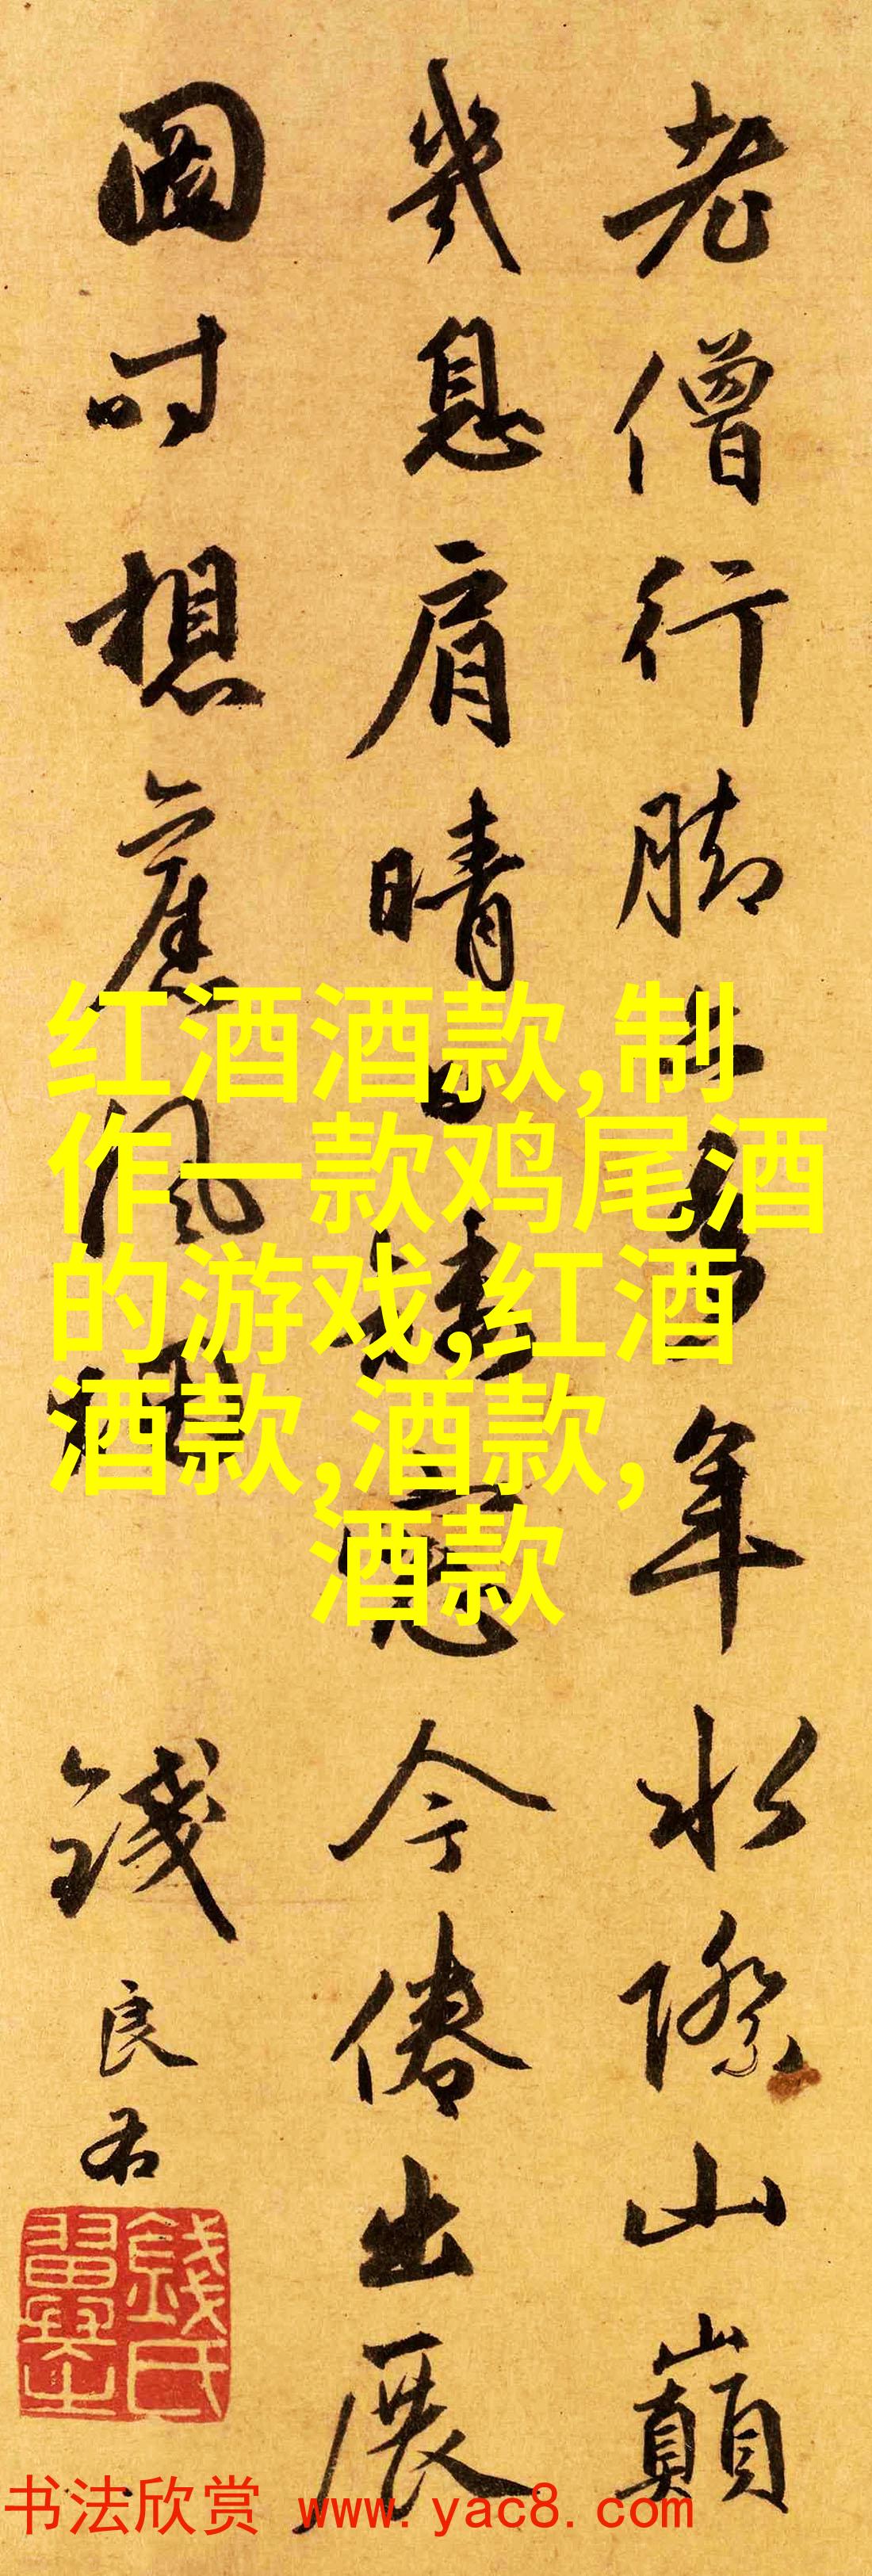 老僧行脚
年水際山巔
幾息肩晴
今倦出展
圖時想舊風烟
錢良右
錢氏翼之
红酒酒款,制
作一款鸡尾酒
的游戏,红酒
酒款,酒款,
酒款
书法欣赏 www.yac8.com